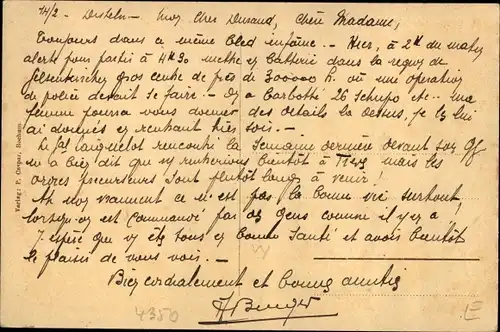 14/2 - Disteln - Mon Cher Durand, Chère Madame,
Toujours dans ce même bled infâme. - Hier, à 2h du matin
alerte pour partir à 4h30 mettre en batterie dans la région de
Gelsenkirchen gros centre de près de 300000 h. où une opération
de police devait se faire - On a 26 Schupo etc - ma
femme pourra vous donner des détails là dessus, je les lui
ai donnés en rentrant hier soir. -
Le Gal rencontré la semaine dernière devant son Q
m'a bien dit que nous rentrerions bientôt à mais les
ordres précurseurs sont plutôt longs à venir!
Ah non vraiment ce n'est pas la bonne vie surtout
lorsqu'on est commandé par des gens comme il y en a
J'espère que vous êtes tous en bonne santé et avoir bientôt
le plaisir de vous voir. -
Bien cordialement et bonnes amitiés
4350
Verlag: F. Caspar, Bochum